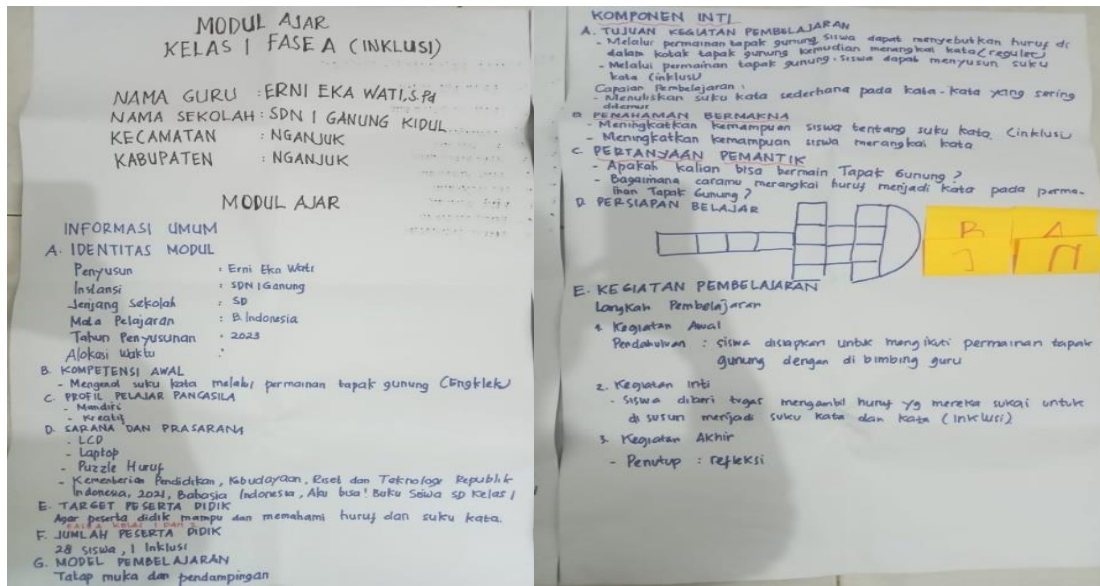 MODUL AJAR
KELAS 1 FASE A (INKLUSI)
NAMA GURU : ERNI EKA WATI, S.Pd
NAMA SEKOLAH : SDN 1 GANUNG KIDUL
KECAMATAN : NGANJUK
KABUPATEN : NGANJUK
MODUL AJAR
INFORMASI UMUM
A. IDENTITAS MODUL
Penyusun : Erni Eka Wati
Instansi : SDN 1 Ganung
Jenjang Sekolah : SD
Mata Pelajaran : B. Indonesia
Tahun Penyusunan : 2023
Alokasi Waktu :
B. KOMPETENSI AWAL
- Mengenal suku kata melalui permainan tapak gunung (Engklek)
C. PROFIL PELAJAR PANCASILA
- Mandiri
- Kreatif
D. SARANA DAN PRASARANA
- LCD
- Laptop
- Puzzle Huruf
- Kementerian Pendidikan, Kebudayaan, Riset dan Teknologi Republik
Indonesia, 2021, Bahasia Indonesia, Aku bisa! Buku Seiwa SD Kelas 1
E. TARGET PESERTA DIDIK
Agar peserta didik mampu dan memahami huruf dan suku kata.
F. JUMLAH PESERTA DIDIK
28 siswa, 1 Inklusi
G. MODEL PEMBELAJARAN
Tatap muka dan pendampingan
KOMPONEN INTI
A. TUJUAN KEGIATAN PEMBELAJARAN
- Melalui permainan tapak gunung siswa dapat menyebutkan huruf di
dalam kotak tapak gunung kemudian merangkai kata (reguler)
- Melalui permainan tapak gunung, siswa dapat menyusun suku
kata (inklusi)
Capaian Pembelajaran :
- Menuliskan suku kata sederhana pada kata-kata yang sering
ditemui
B. PEMAHAMAN BERMAKNA
- Meningkatkan kemampuan siswa tentang suku kata (inklusi)
- Meningkatkan kemampuan siswa merangkai kata
C. PERTANYAAN PEMANTIK
- Apakah kalian bisa bermain Tapak Gunung ?
- Bagaimana caramu merangkai huruf menjadi kata pada perma-
inan Tapak Gunung ?
D. PERSIAPAN BELAJAR
B A
J U
E. KEGIATAN PEMBELAJARAN
Langkah Pembelajaran
1. Kegiatan Awal
Pendahuluan : siswa disiapkan untuk mengikuti permainan tapak
gunung dengan di bimbing guru
2. Kegiatan Inti
- Siswa diberi tugas mengambil huruf yg mereka sukai untuk
di susun menjadi suku kata dan kata (Inklusi)
3. Kegiatan Akhir
- Penutup : refleksi